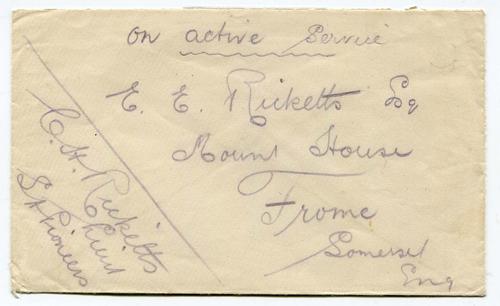 On active Service
E. E. Ricketts Esq
Mount House
Frome
Somerset
Eng
C. H. Ricketts
Lieut
Pioneers